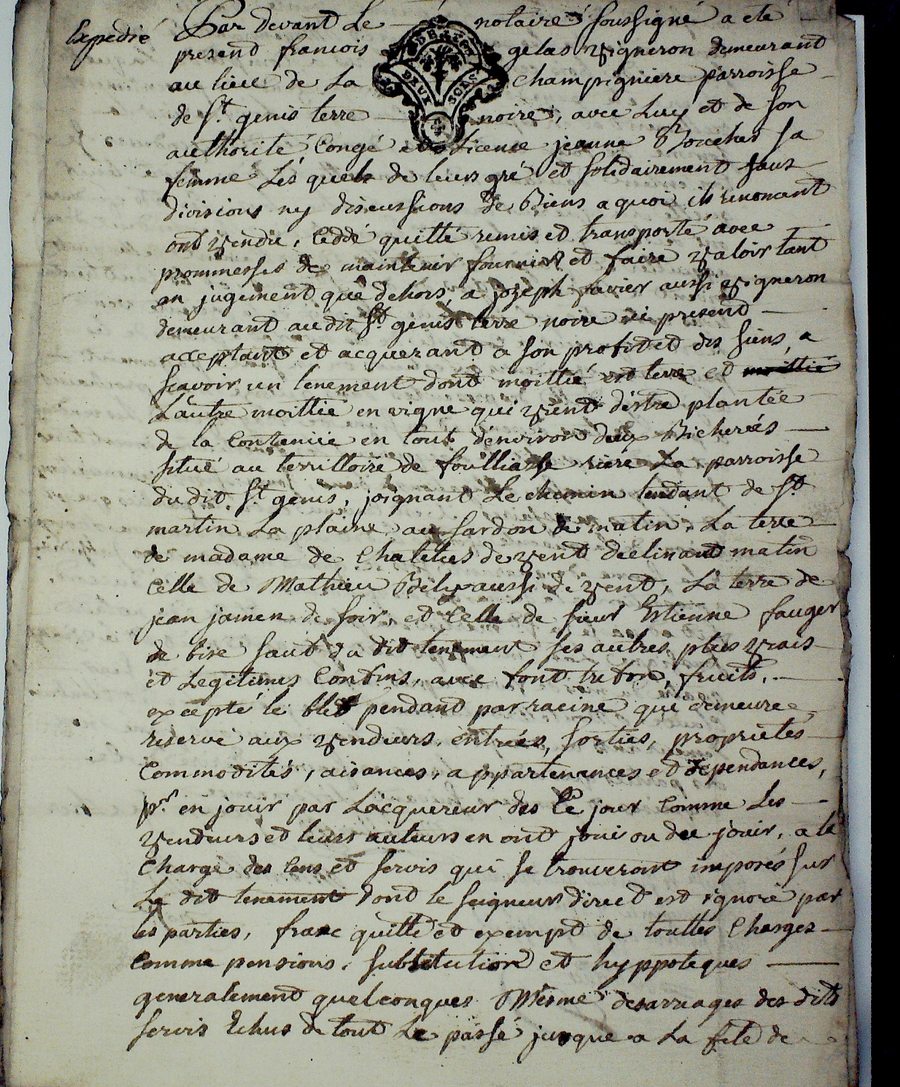 Expedié
Par devant Le notaire soussigné a eté
present francois gelas vigneron demeurant
au lieu de La Champigniere parroisse
de St genis terre noire, avec Luy et de son
authorité Congé et Licence jeanne Boucher sa
femme Lésquels de leurs gré et solidairement sans
divisions ny discussions de Biens a quoi ils renoncent
ont vendu, Ceddé quitté remis et transporté avec
prommesses de maintenir fournir et faire valoir tant
en jugement que dehors, a joseph aussi vigneron
demeurant audit St genis terre noire ici present
acceptant et acquerant a son profit et des siens, a
scavoir un tenement dont moittié est terre et moittié
Lautre moittie en vigne qui vient d'être plantée
de la Contenue en tout d'environ deux Bicherées
situé au territoire de foulliasse riere La parroisse
dudit St genis, joignant Le chemin tendant de St
martin La plaine au sardon de matin, La terre
de madame de de vent declinant matin
Celle de Mathieu aussi de vent, La terre de
jean jamen de soir, et Celle de sieur Estienne fauger
de bise sauf a dit tenement ses autres plus vrais
et Legitimes Confins, avec font tresfon, fruits,
excepté le bled pendant par racine qui demeure
reservé aux vendeurs, entrées, sorties, proprietés
Commodités, aisances, appartenances et dependances,
pr en jouir par Lacquereur des Ce jour Comme Les
vendeurs et leurs auteurs en ont joui ou du jouir, a la
Charge des Cens et servis qui se trouveront imposés sur
Le dit tenement dont le seigneur direct est ignoré par
les parties, franc quitte et exempt de touttes Charges
Comme pensions, substitution et hyppoteques
generalement quelconques Même desarrages des dits
servis Echus de tout Le passé jusque a La fête de